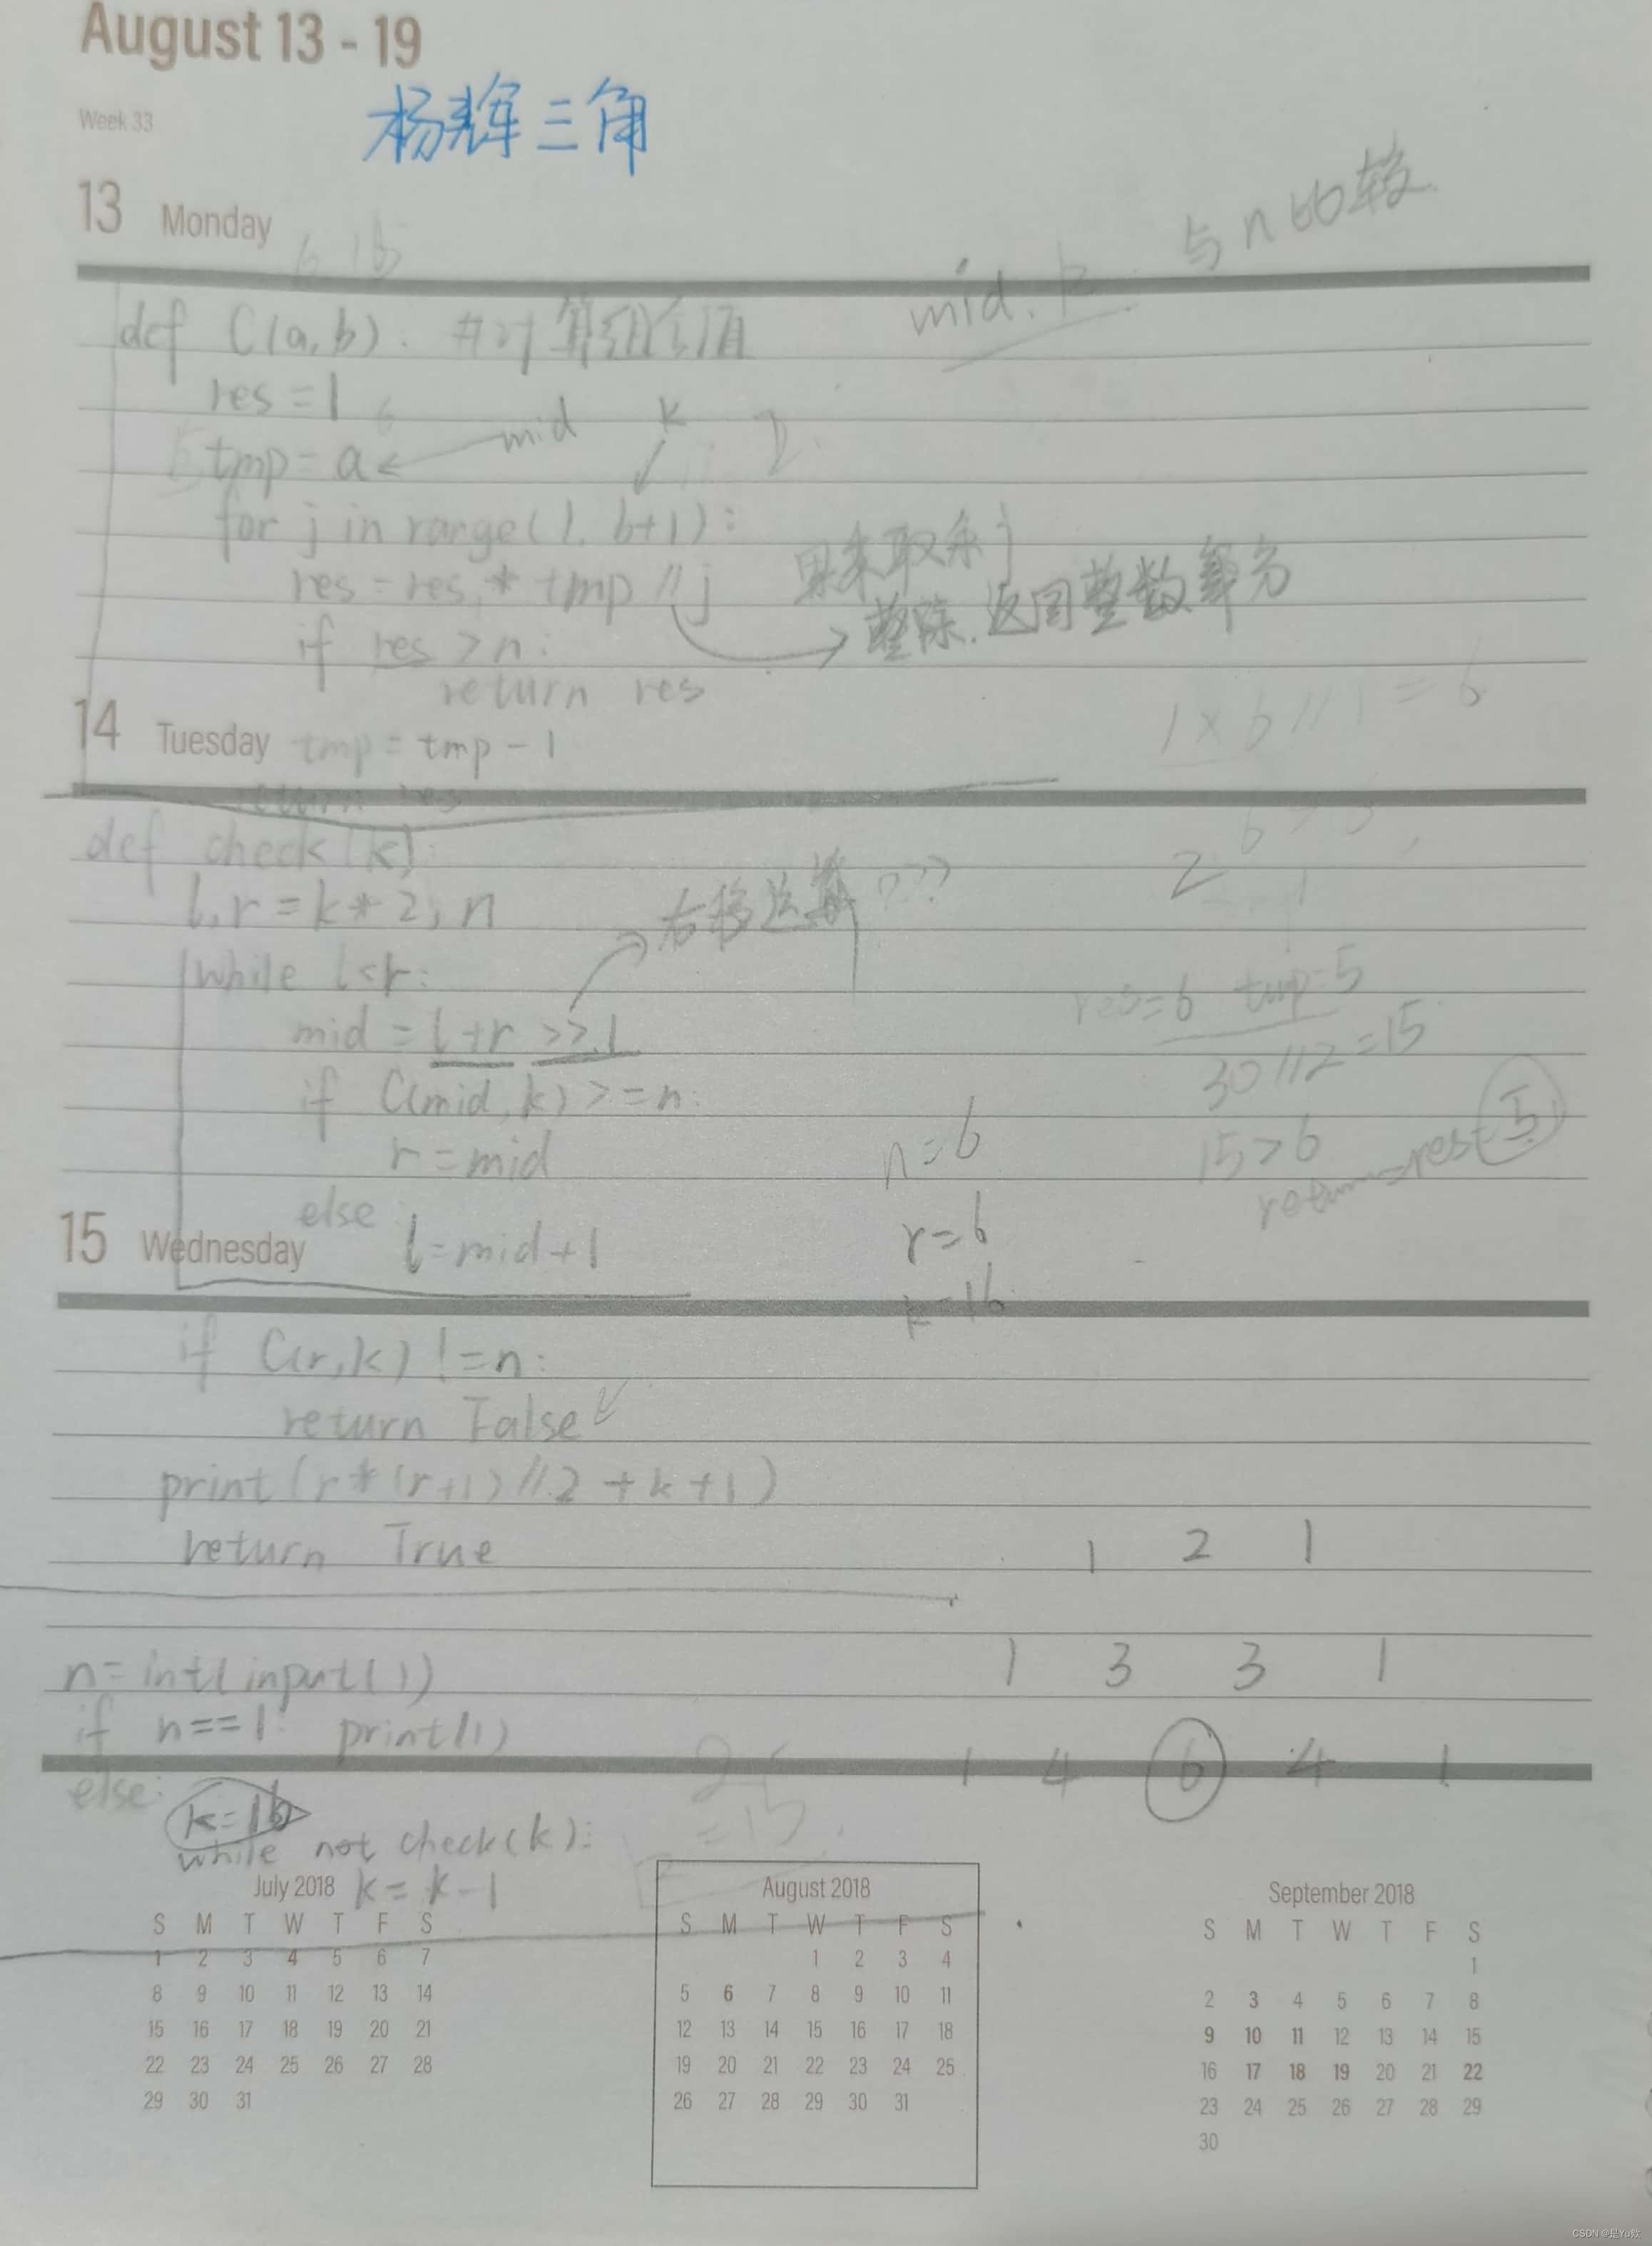 August 13 - 19
Week 33
杨辉三角
13 Monday
与n比较
mid. k
def C(a,b). #计算组合值
res=1
tmp=a← mid k
for j in range(1, b+1):
res=res * tmp //j
整除.返回整数部分
if res >n:
return res
14 Tuesday tmp=tmp-1
1×6//1=6
return res
def check(k):
2
l,r=k*2, n
右移运算???
while l<r:
res=6 tmp=5
mid=l+r >>1
30//2=15
if C(mid,k)>=n:
n=6
15>6
r=mid
return res
15
else:
r=6
15 Wednesday l=mid+1
k=16
if C(r,k) !=n:
return False
print(r*(r+1)//2+k+1)
return True
1 2 1
n=int(input())
1 3 3 1
if n==1: print(1)
1 4 6 4 1
else:
k=16
while not check(k):
=15
k=k-1
July 2018
S M T W T F S
1 2 3 4 5 6 7
8 9 10 11 12 13 14
15 16 17 18 19 20 21
22 23 24 25 26 27 28
29 30 31
August 2018
S M T W T F S
1 2 3 4
5 6 7 8 9 10 11
12 13 14 15 16 17 18
19 20 21 22 23 24 25
26 27 28 29 30 31
September 2018
S M T W T F S
1
2 3 4 5 6 7 8
9 10 11 12 13 14 15
16 17 18 19 20 21 22
23 24 25 26 27 28 29
30
CSDN @是Yu欸